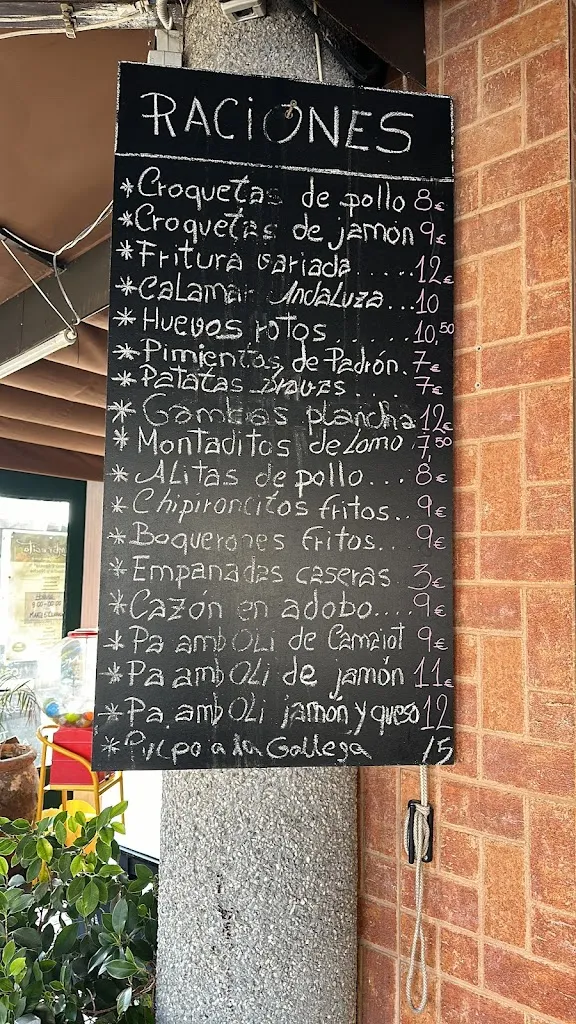 RACIONES
*Croquetas de pollo 8€
*Croquetas de jamón 9€
*Fritura variada.....12€
*Calamar Andaluza...10
*Huevos rotos......10,50
*Pimientos de Padrón.7€
*Patatas bravas....7€
*Gambas plancha 12€
*Montaditos de Lomo 7,50
*Alitas de pollo...8€
*Chipironcitos fritos..9€
*Boquerones fritos...9€
*Empanadas caseras.3€
*Cazón en adobo....9€
*Pa amb Oli de Camaiot 9€
*Pa amb Oli de jamón 11€
*Pa amb Oli jamón y queso 12
*Pulpo a la Gallega 15